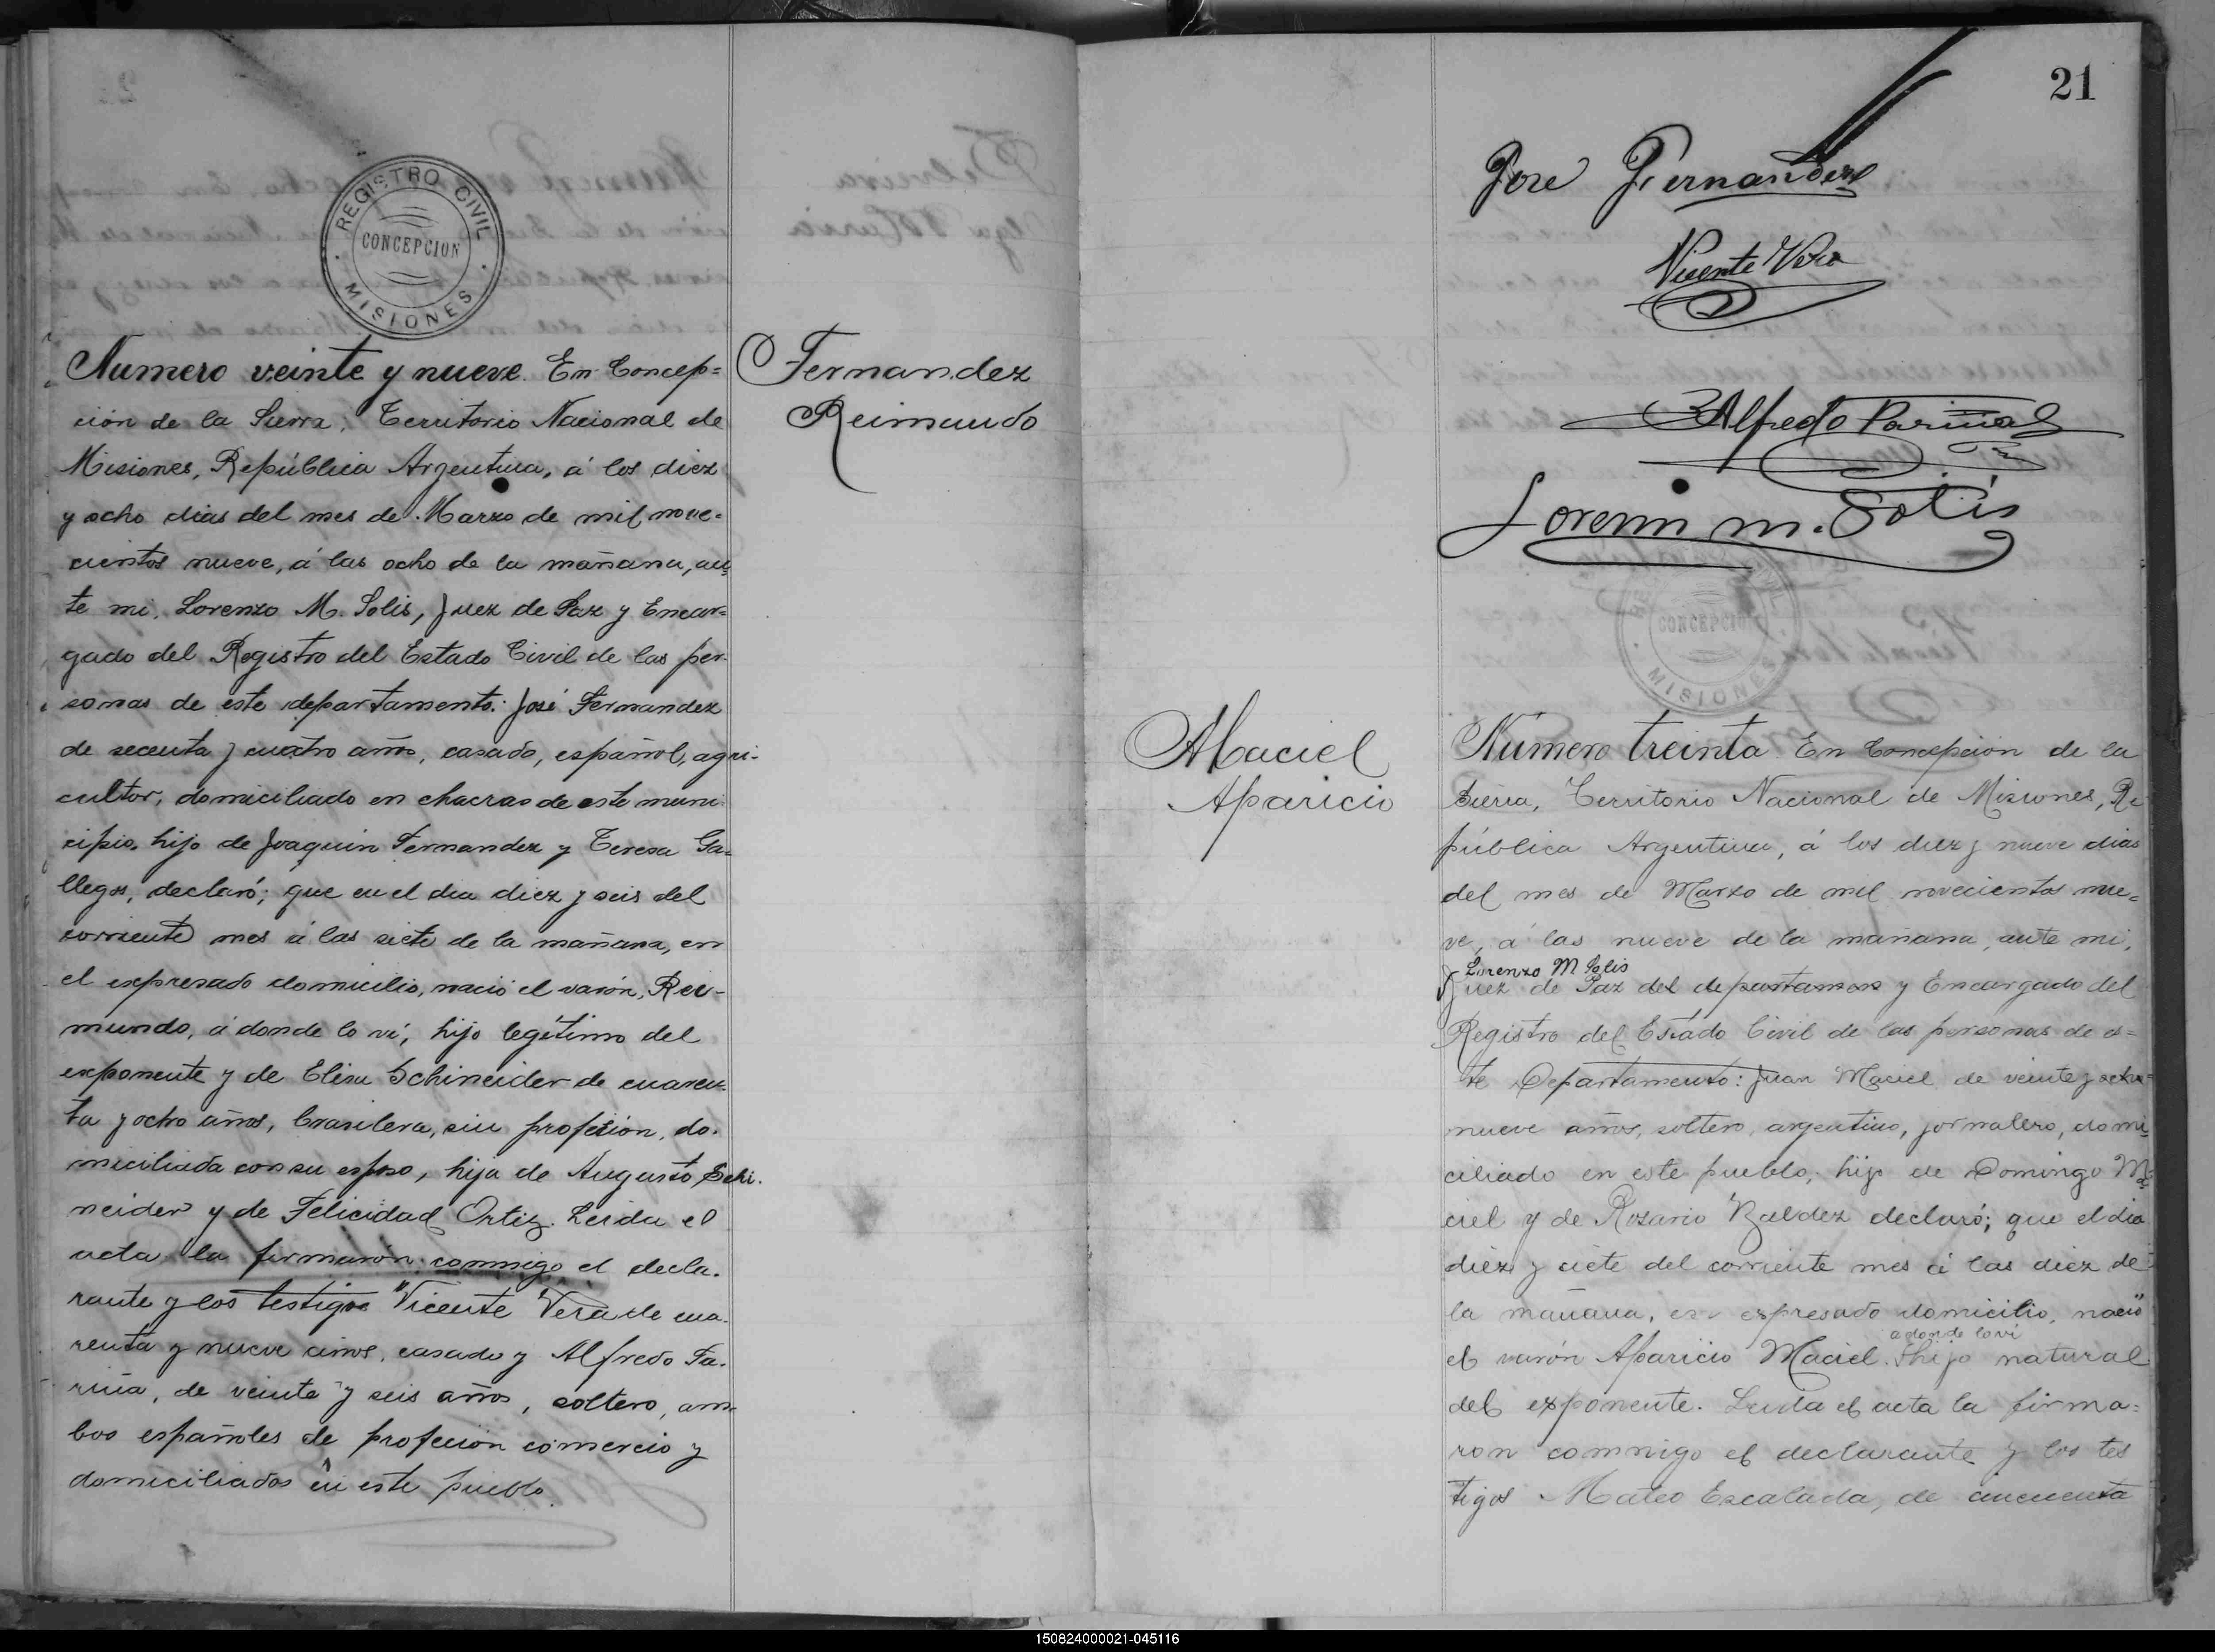 REGISTRO CIVIL
CONCEPCION
MISIONES
Numero veinte y nueve. En Concep=
ción de la Sierra, Territorio Nacional de
Misiones, República Argentina, á los diez
y ocho dias del mes de Marzo de mil nove-
cientos nueve, á las ocho de la mañana, an
te mi, Lorenzo M. Solis, Juez de Paz y Encar=
gado del Registro del Estado Civil de las per-
sonas de este departamento: José Fernandez
de secenta y cuatro años, casado, español, agri-
cultor, domiciliado en chacras de este muni
cipio, hijo de Joaquin Fernandez y Teresa Ga-
llegos, declaró; que en el dia diez y seis del
corriente mes á las siete de la mañana, en
el expresado domicilio, nació el varón, Rei-
mundo, á donde lo vi, hijo legítimo del
exponente y de Elisa Schineider de cuaren-
ta y ocho años, brasilera, sin profesión, do-
miciliada con su esposo, hija de Augusto Schi-
neider y de Felicidad Ortiz. Leida el
acta la firmarón conmigo el decla-
rante y los testigos Vicente Vera de cua-
renta y nueve años, casado y Alfredo Fa-
riña, de veinte y seis años, soltero, am-
bos españoles de profecion comercio y
domiciliados en este pueblo.
Fernandez
Reimundo
21
Jose Fernandez
Vicente Vera
Alfredo Fariña
Lorenzo M. Solis
CONCEPCION
MISIONES
Maciel
Aparicio
Número treinta En Concepción de la
Sierra, Territorio Nacional de Misiones, Re
pública Argentina, á los diez y nueve dias
del mes de Marzo de mil novecientos nue=
ve, á las nueve de la mañana, ante mi,
Lorenzo M Solis
Juez de Paz del departamen y Encargado del
Registro del Estado Civil de las personas de es=
te Departamento: Juan Maciel de veinte y ocho
nueve años, soltero, argentino, jornalero, domi
ciliado en este pueblo, hijo de Domingo Ma
ciel y de Rosario Baldez declaró; que el dia
diez y siete del corriente mes á las diez de
la mañana, en expresado domicilio, nació
a donde lo vi
el varón Aparicio Maciel hijo natural
del exponente. Leida el acta la firma=
ron conmigo el declarante y los tes
tigos Mateo Escalada, de cincuenta
150824000021-045116